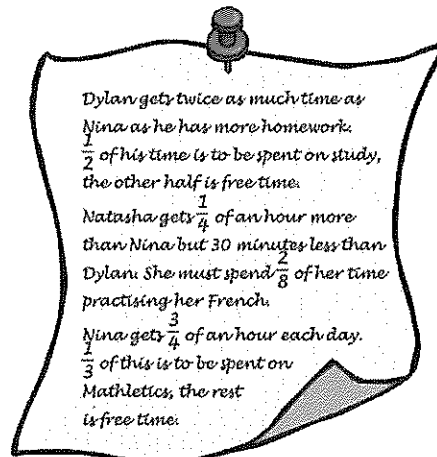 Dylan gets twice as much time as
Nina as he has more homework.
1/2 of his time is to be spent on study,
the other half is free time.
Natasha gets 1/4 of an hour more
than Nina but 30 minutes less than
Dylan. She must spend 2/8 of her time
practising her French.
Nina gets 3/4 of an hour each day.
1/3 of this is to be spent on
Mathletics, the rest
is free time.